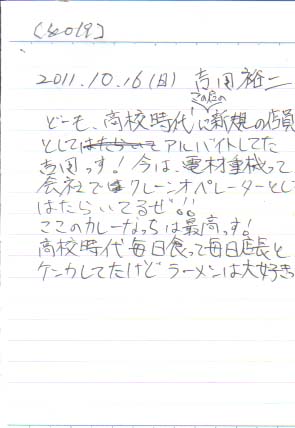 [so019]
2011.10.16(日) 吉田裕二
この店の
どーも、高校時代に新規の店員
としてはたらいてアルバイトしてた
吉田っす!今は、電材重機って
会社でクレーンオペレーターとし
はたらいてるぜ!!
ここのカレーなっちは最高っす!
高校時代毎日食って毎日店長と
ケンカしてたけどラーメンは大好きっ